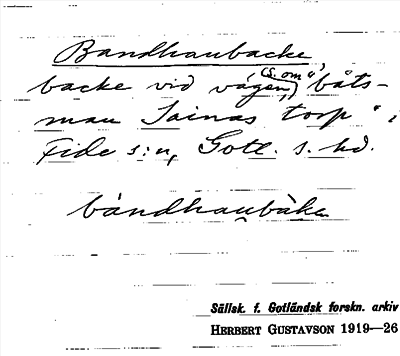 Bandhaubacke
backe vid vägen, (s. om "båts-
man Sainas torp" i
Fide s:n, Gotl. s. hd.
bándhau̯bàkɐ
Sällsk. f. Gotländsk forskn. arkiv
HERBERT GUSTAVSON 1919—26